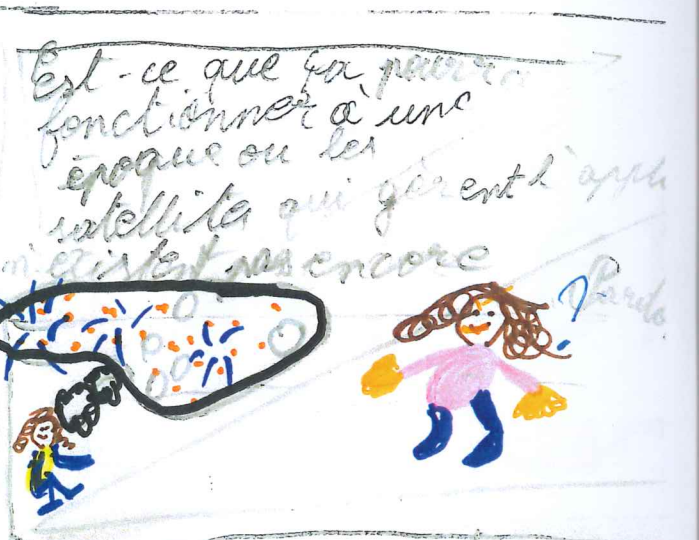 Est-ce que ça pourra
fonctionner à une
époque ou les
satellite qui gèrent l'appli
n'existent pas encore
?